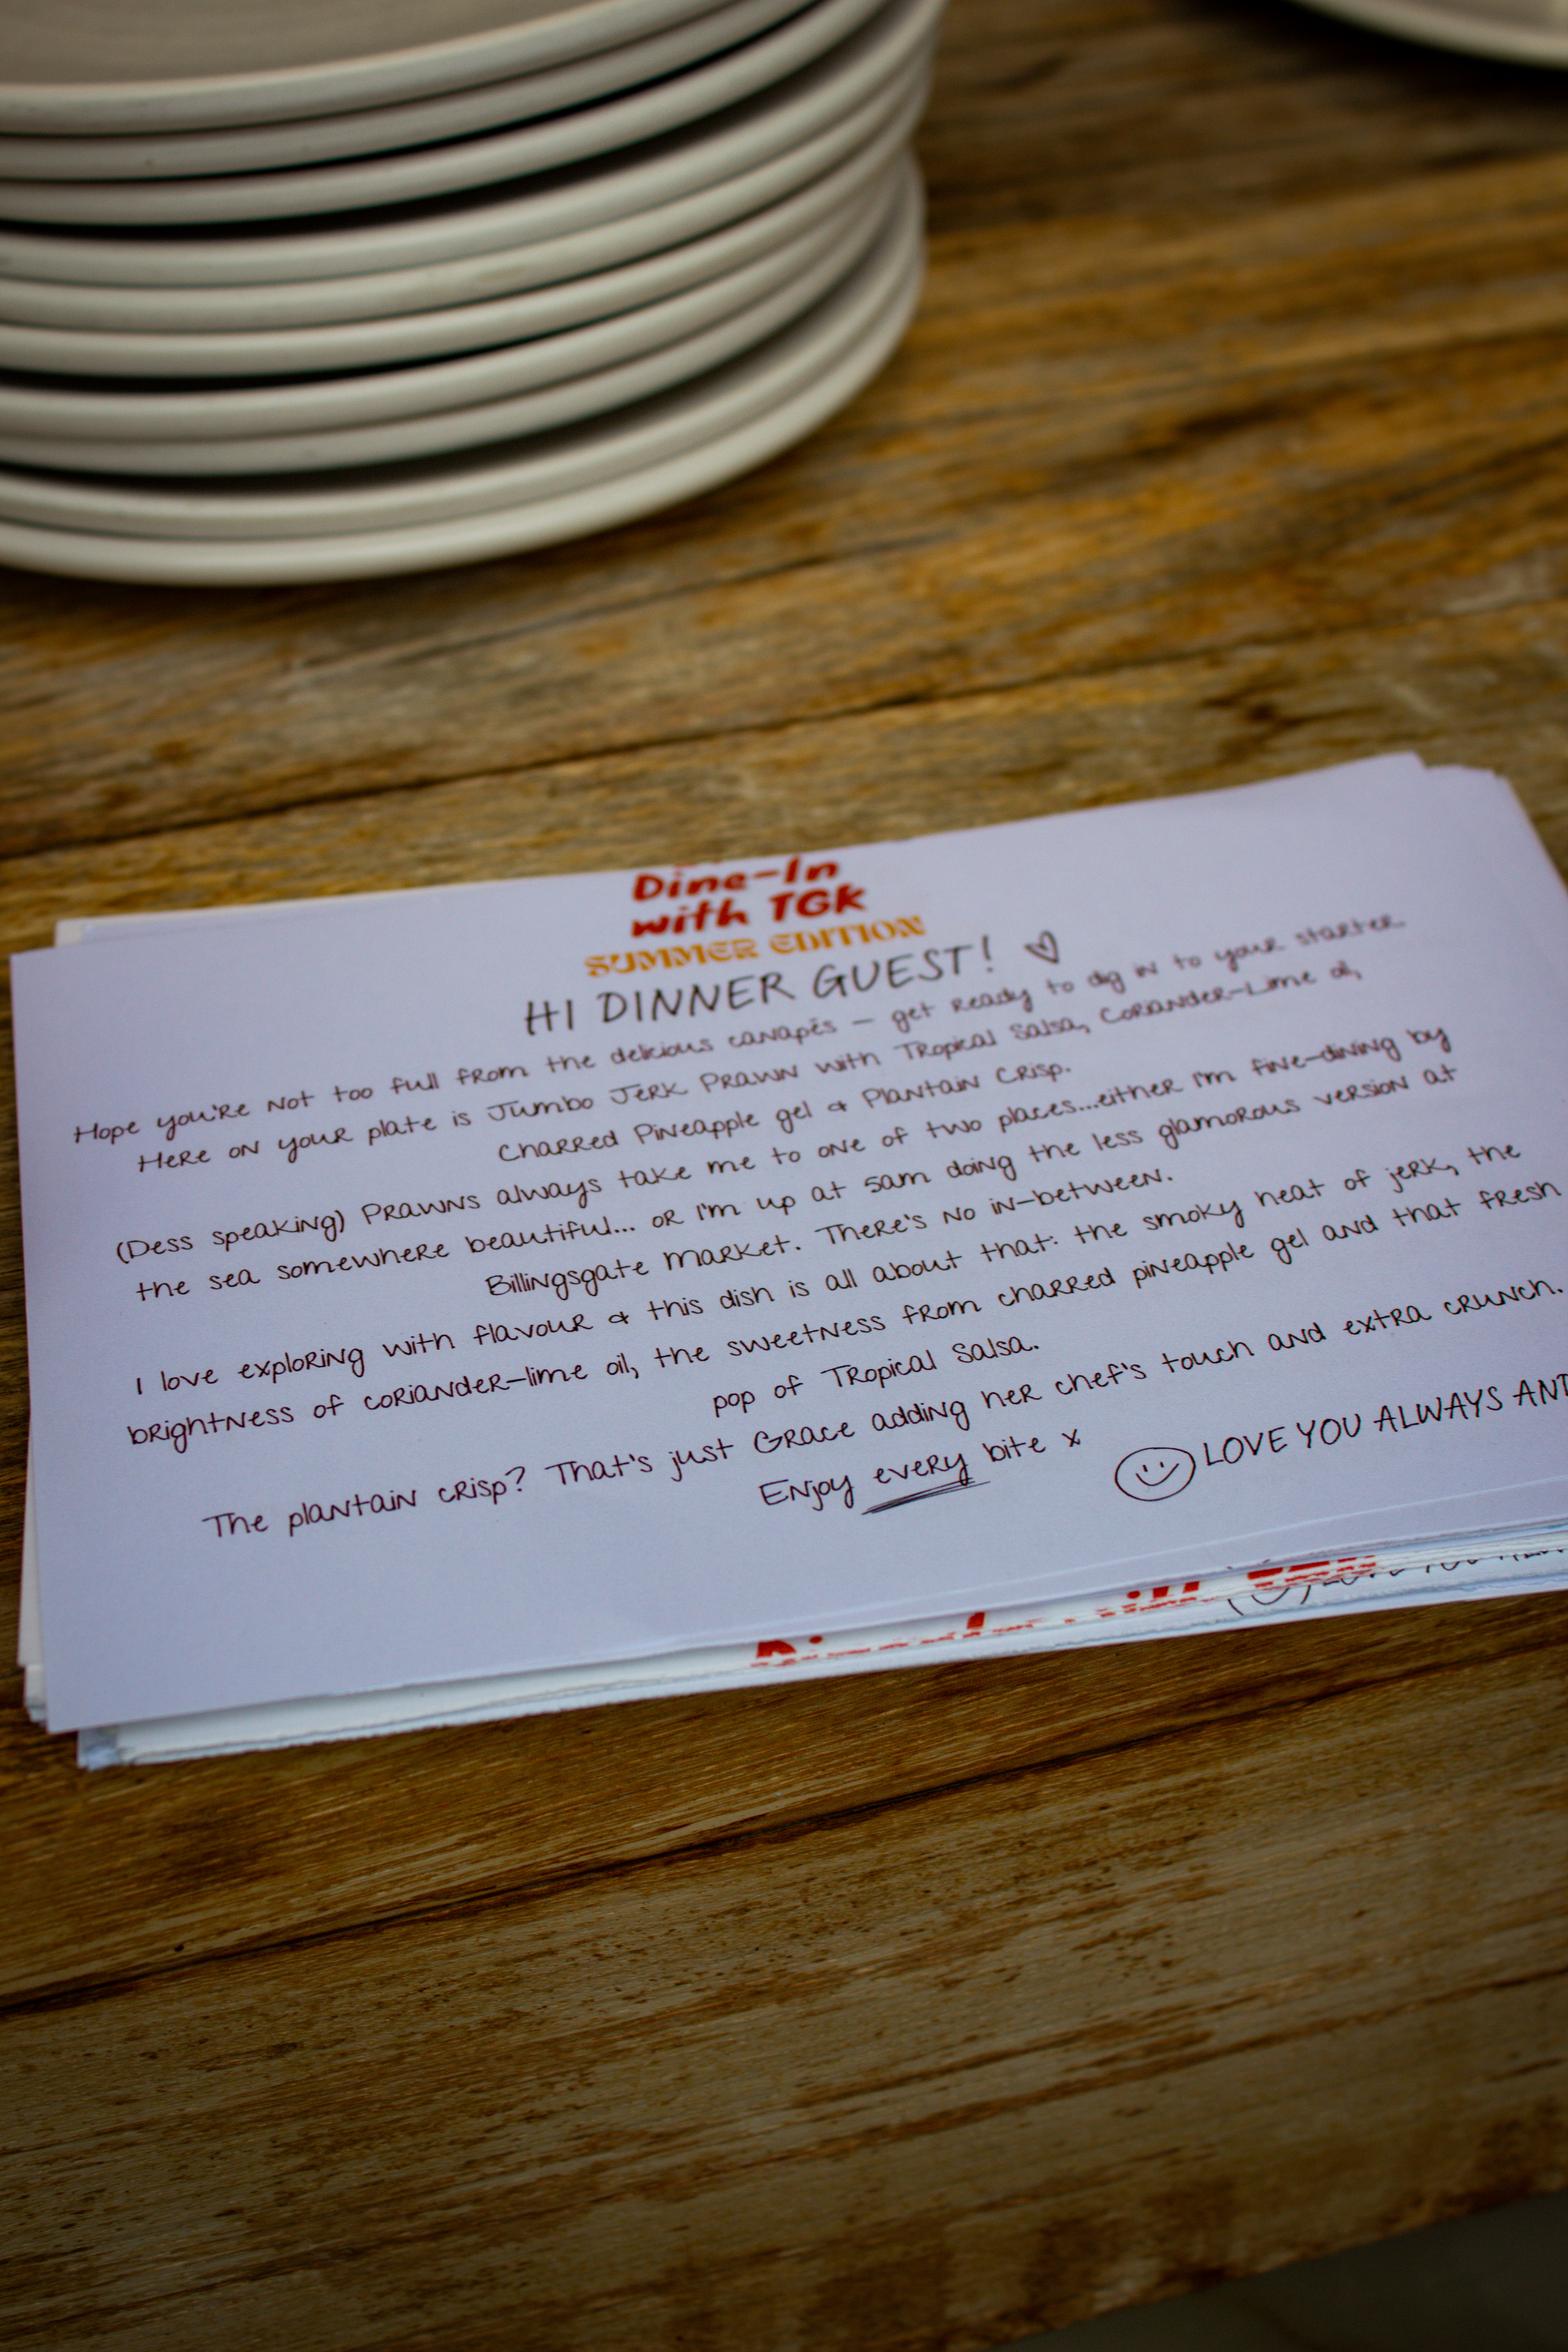 Dine-In
with TGK
SUMMER EDITION
HI DINNER GUEST! ♡
Hope you're not too full from the delicious canapés — get ready to dig in to your starter.
Here on your plate is Jumbo Jerk Prawn with Tropical Salsa, Coriander-Lime oil,
Charred Pineapple gel & Plantain Crisp.
(Dess speaking) Prawns always take me to one of two places...either I'm fine-dining by
the sea somewhere beautiful... or I'm up at 5am doing the less glamorous version at
Billingsgate Market. There's no in-between.
I love exploring with flavour & this dish is all about that: the smoky heat of jerk, the
brightness of coriander-lime oil, the sweetness from charred pineapple gel and that fresh
pop of Tropical Salsa.
The plantain crisp? That's just Grace adding her chef's touch and extra crunch.
Enjoy every bite x
LOVE YOU ALWAYS AND